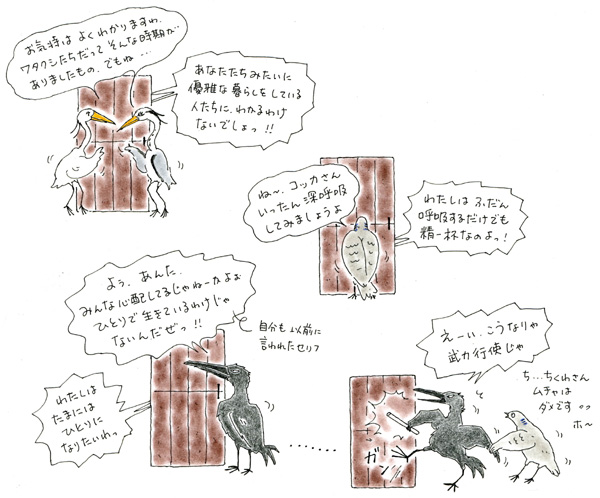 お気持はよくわかりますわ。
ワタクシたちだってそんな時期が
ありましたもの。でもね…
あなたたちみたいに
優雅な暮らしをしている
人たちに、わかるわけ
ないでしょっ!!
ね〜、コッカさん
いったん深呼吸
してみましょうよ
わたしは ふだん
呼吸するだけでも
精一杯なのよっ!
よう、あんた、
みんな心配してるじゃねーかよぉ
ひとりで生きているわけじゃ
ないんだぜっ!!
自分も以前に
言われたセリフ
わたしは
たまには
ひとりに
なりたいわっ
……
えーい、こうなりゃ
武力行使じゃ
ち…ちくわさん
ムチャは
ダメです。。
ホ〜
ガン